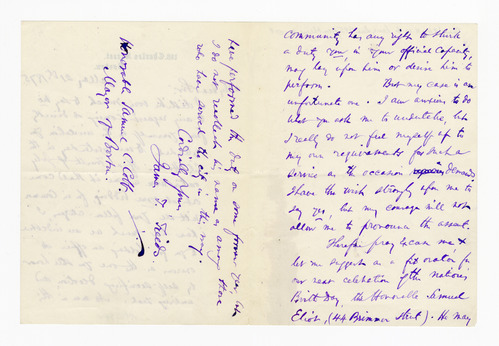 community has any right to shirk
a duty you, in your official capacity,
may lay upon him or desire him to
perform. But my case is an
unfortunate one. I am anxious to do
what you ask me to undertake, but
I really do not feel myself up to
my own requirements for such a
service as the occasion demands
I have the wish strongly upon me to
say yes, but my courage will not
allow me to pronounce the assent.
Therefore pray excuse me &
let me suggest as a fit orator for
our next celebration of the nation's
Birth Day, the Honorable Samuel
Eliot, (44 Brimmer Street). He may
have performed the duty on some former year, but
I do not recollect his name as among those
who have served the city in this way.
Cordially Yours,
James T. Fields
Honorable Samuel C. Cobb.
Mayor of Boston.